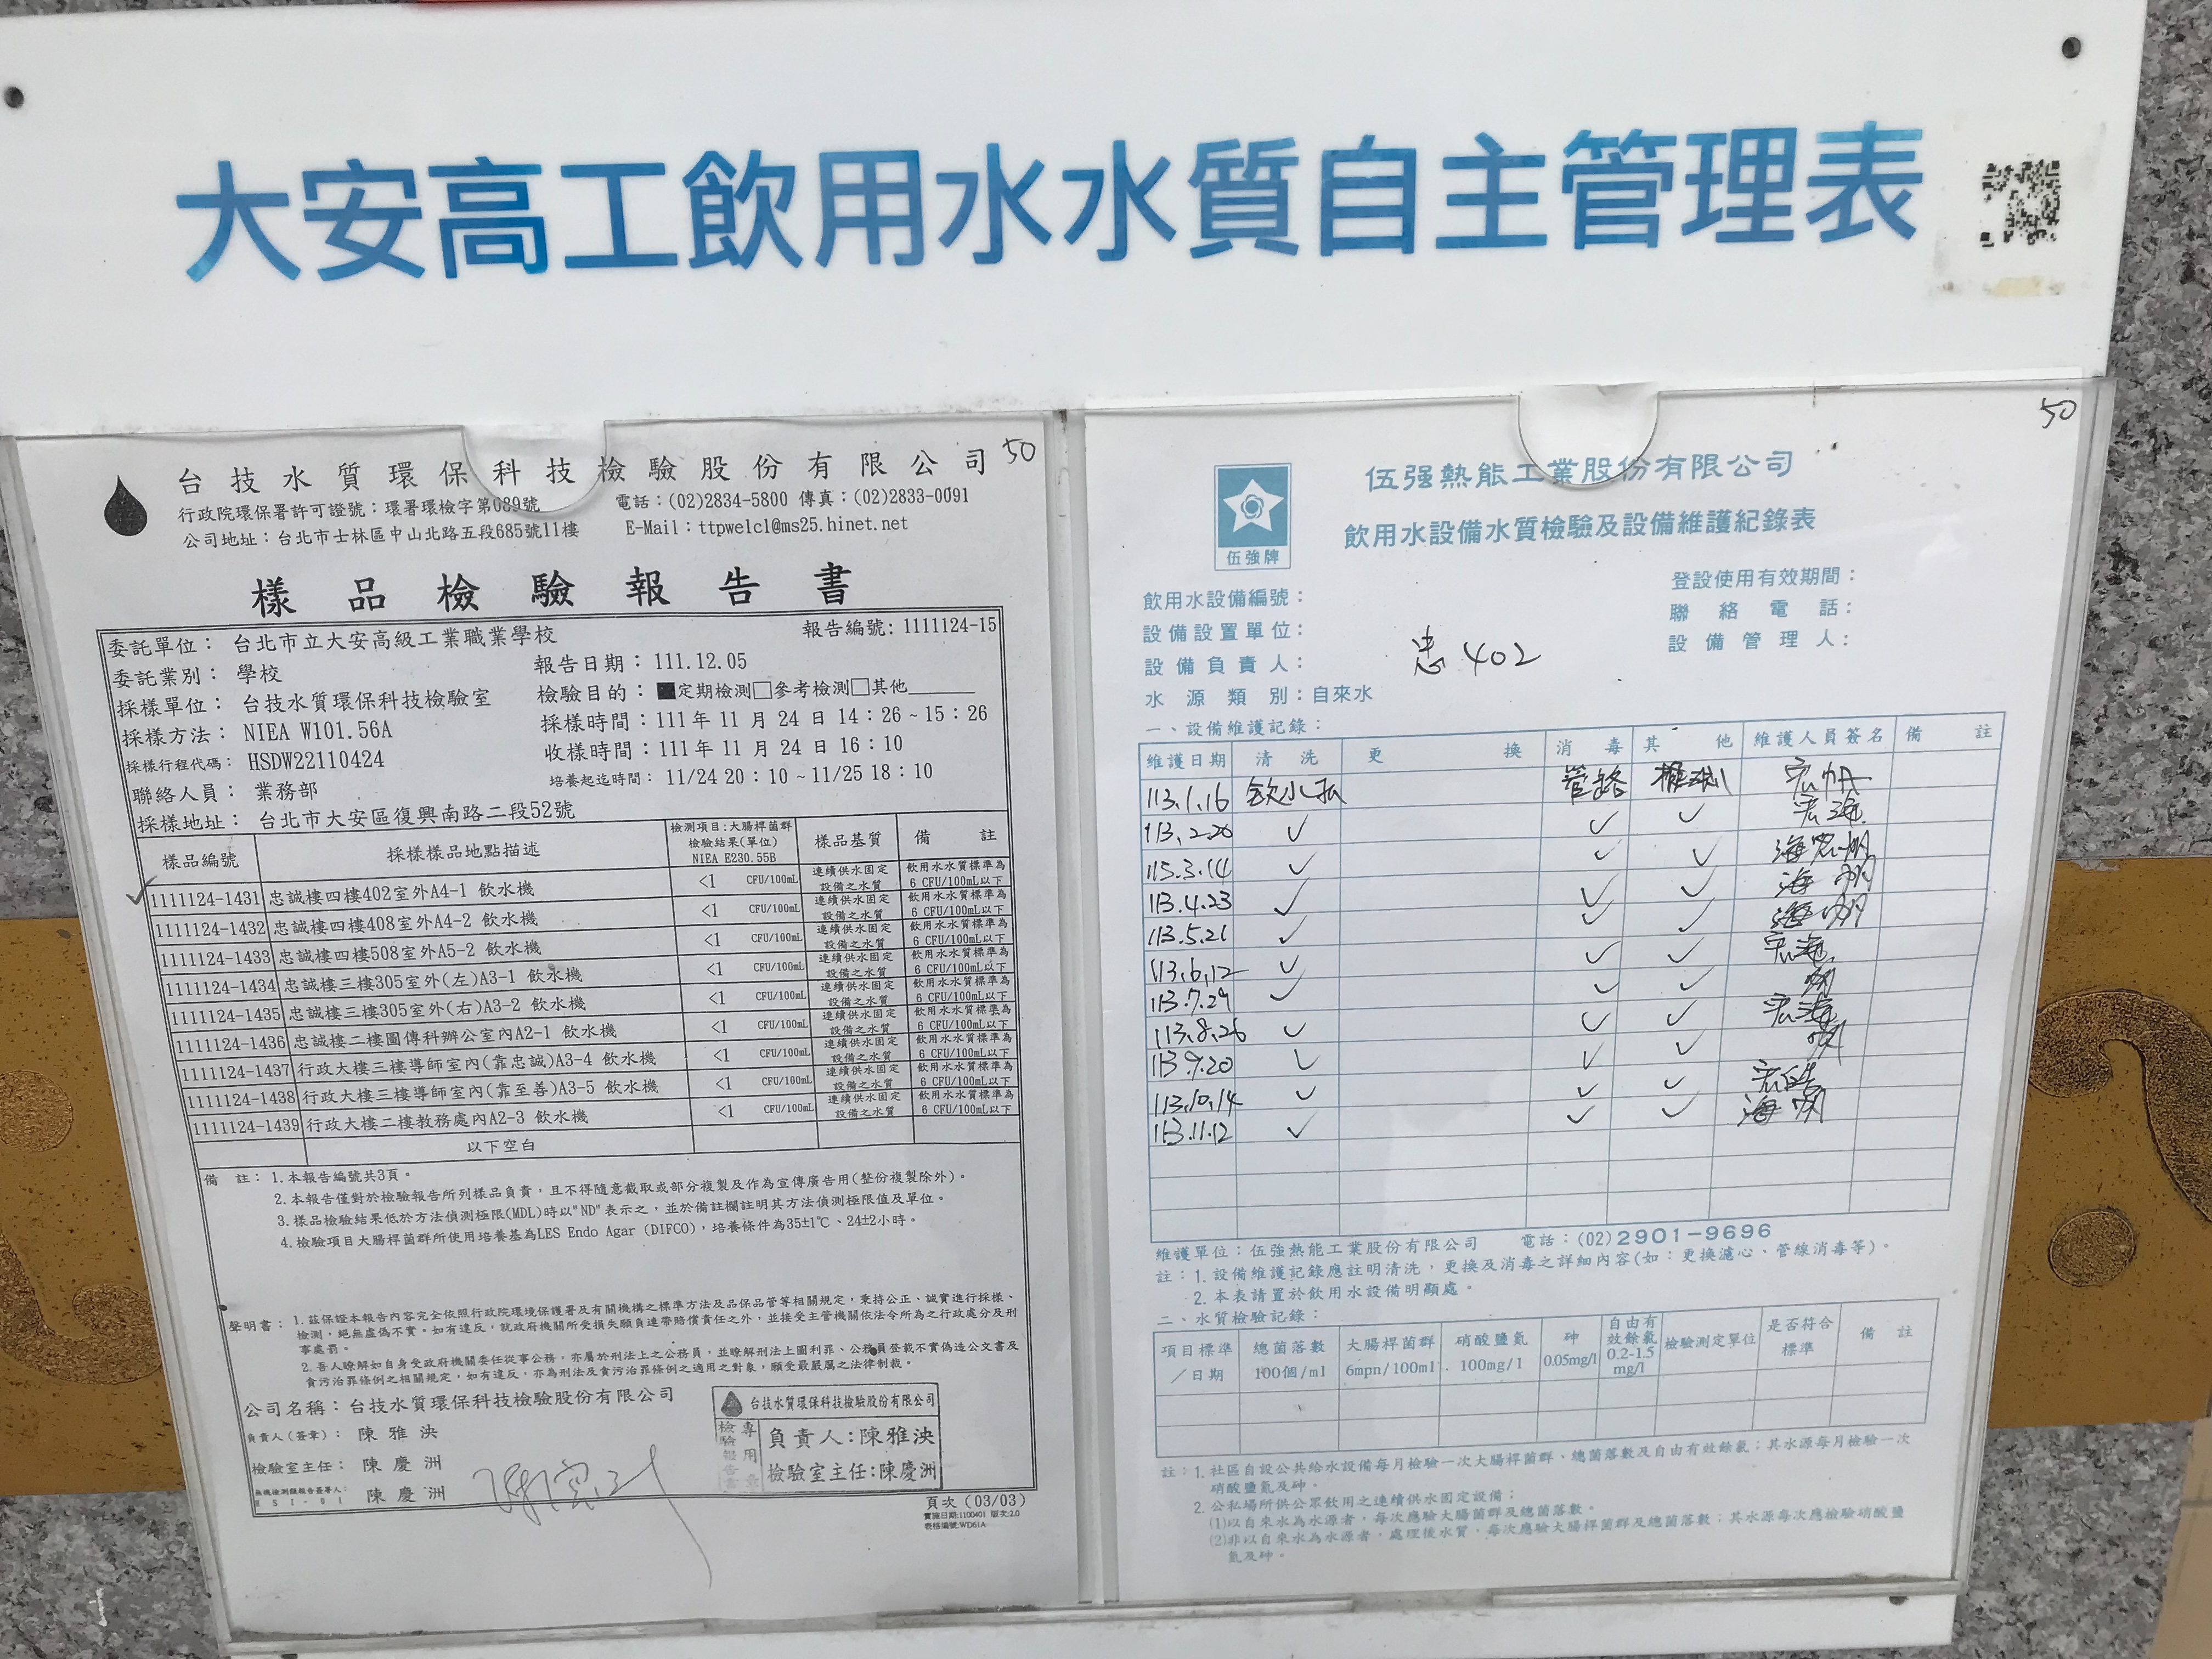 大安高工飲用水水質自主管理表
50
台技水質環保科技檢驗股份有限公司
行政院環保署許可證號：環署環檢字第089號
電話：(02)2834-5800 傳真：(02)2833-0091
公司地址：台北市士林區中山北路五段685號11樓
E-Mail：ttpwelcl@ms25.hinet.net
樣品檢驗報告書
委託單位： 台北市立大安高級工業職業學校
報告編號: 1111124-15
委託業別： 學校
報告日期：111.12.05
採樣單位： 台技水質環保科技檢驗室
檢驗目的：■定期檢測□參考檢測□其他
採樣方法： NIEA W101.56A
採樣時間：111年 11 月 24 日 14：26 ~ 15：26
採樣行程代碼： HSDW22110424
收樣時間：111年 11 月 24 日 16：10
聯絡人員： 業務部
培養起迄時間：11/24 20：10 ~ 11/25 18：10
採樣地址： 台北市大安區復興南路二段52號
樣品編號 採樣樣品地點描述 檢測項目:大腸桿菌群 檢驗結果(單位) NIEA E230.55B 樣品基質 備註
✓ 1111124-1431 忠誠樓四樓402室外A4-1 飲水機 <1 CFU/100mL 連續供水固定設備之水質 飲用水水質標準為6 CFU/100mL以下
1111124-1432 忠誠樓四樓408室外A4-2 飲水機 <1 CFU/100mL 連續供水固定設備之水質 飲用水水質標準為6 CFU/100mL以下
1111124-1433 忠誠樓四樓508室外A5-2 飲水機 <1 CFU/100mL 連續供水固定設備之水質 飲用水水質標準為6 CFU/100mL以下
1111124-1434 忠誠樓三樓305室外(左)A3-1 飲水機 <1 CFU/100mL 連續供水固定設備之水質 飲用水水質標準為6 CFU/100mL以下
1111124-1435 忠誠樓三樓305室外(右)A3-2 飲水機 <1 CFU/100mL 連續供水固定設備之水質 飲用水水質標準為6 CFU/100mL以下
1111124-1436 忠誠樓二樓圖傳科辦公室內A2-1 飲水機 <1 CFU/100mL 連續供水固定設備之水質 飲用水水質標準為6 CFU/100mL以下
1111124-1437 行政大樓三樓導師室內(靠忠誠)A3-4 飲水機 <1 CFU/100mL 連續供水固定設備之水質 飲用水水質標準為6 CFU/100mL以下
1111124-1438 行政大樓三樓導師室內(靠至善)A3-5 飲水機 <1 CFU/100mL 連續供水固定設備之水質 飲用水水質標準為6 CFU/100mL以下
1111124-1439 行政大樓二樓教務處內A2-3 飲水機 <1 CFU/100mL 連續供水固定設備之水質 飲用水水質標準為6 CFU/100mL以下
以下空白
備 註：1.本報告編號共3頁。
2.本報告僅對於檢驗報告所列樣品負責，且不得隨意截取或部分複製及作為宣傳廣告用(整份複製除外)。
3.樣品檢驗結果低於方法偵測極限(MDL)時以"ND"表示之，並於備註欄註明其方法偵測極限值及單位。
4.檢驗項目大腸桿菌群所使用培養基為LES Endo Agar (DIFCO)，培養條件為35±1℃、24±2小時。
聲明書：1.茲保證本報告內容完全依照行政院環境保護署及有關機構之標準方法及品保品管等相關規定，秉持公正、誠實進行採樣、
檢測，絕無虛偽不實。如有違反，就政府機關所受損失願負連帶賠償責任之外，並接受主管機關依法令所為之行政處分及刑
事處罰。
2.吾人瞭解如自身受政府機關委任從事公務，亦屬於刑法上之公務員，並瞭解刑法上圖利罪、公務員登載不實偽造公文書及
貪污治罪條例之相關規定，如有違反，亦為刑法及貪污治罪條例之適用之對象，願受最嚴厲之法律制裁。
公司名稱：台技水質環保科技檢驗股份有限公司
負責人(簽章)： 陳雅泱
檢驗室主任： 陳慶洲
無機檢測類報告簽署人： 陳慶洲
台技水質環保科技檢驗股份有限公司
檢驗報告書專用章
負責人：陳雅泱
檢驗室主任：陳慶洲
頁次 (03/03)
實施日期:1100401 版次:2.0
表格編號:WD61A
50
伍強熱能工業股份有限公司
飲用水設備水質檢驗及設備維護紀錄表
伍強牌
飲用水設備編號：
登設使用有效期間：
設備設置單位：
聯絡電話：
設備負責人：
忠 402
設備管理人：
水源類別：自來水
一、設備維護記錄：
維護日期 清洗 更換 消毒 其他 維護人員簽名 備註
113.1.16 管路
113.2.20 ✓ ✓ ✓
113.3.14 ✓ ✓ ✓
113.4.23 ✓ ✓ ✓
113.5.21 ✓ ✓ ✓
113.6.12 ✓ ✓ ✓
113.7.29 ✓ ✓ ✓
113.8.26 ✓ ✓ ✓
113.9.20 ✓ ✓ ✓
113.10.14 ✓ ✓ ✓
113.11.12 ✓ ✓ ✓
維護單位：伍強熱能工業股份有限公司 電話：(02)2901-9696
註：1. 設備維護記錄應註明清洗，更換及消毒之詳細內容(如：更換濾心、管線消毒等)。
2. 本表請置於飲用水設備明顯處。
二、水質檢驗記錄：
項目標準／日期 總菌落數 100個/ml 大腸桿菌群 6mpn/100ml 硝酸鹽氮 100mg/l 砷 0.05mg/l 自由有效餘氯 0.2-1.5 mg/l 檢驗測定單位 是否符合標準 備註
註：1. 社區自設公共給水設備每月檢驗一次大腸桿菌群、總菌落數及自由有效餘氯；其水源每月檢驗一次
硝酸鹽氮及砷。
2. 公私場所供公眾飲用之連續供水固定設備：
(1)以自來水為水源者，每次應驗大腸菌群及總菌落數。
(2)非以自來水為水源者，處理後水質，每次應驗大腸桿菌群及總菌落數；其水源每次應檢驗硝酸鹽
氮及砷。